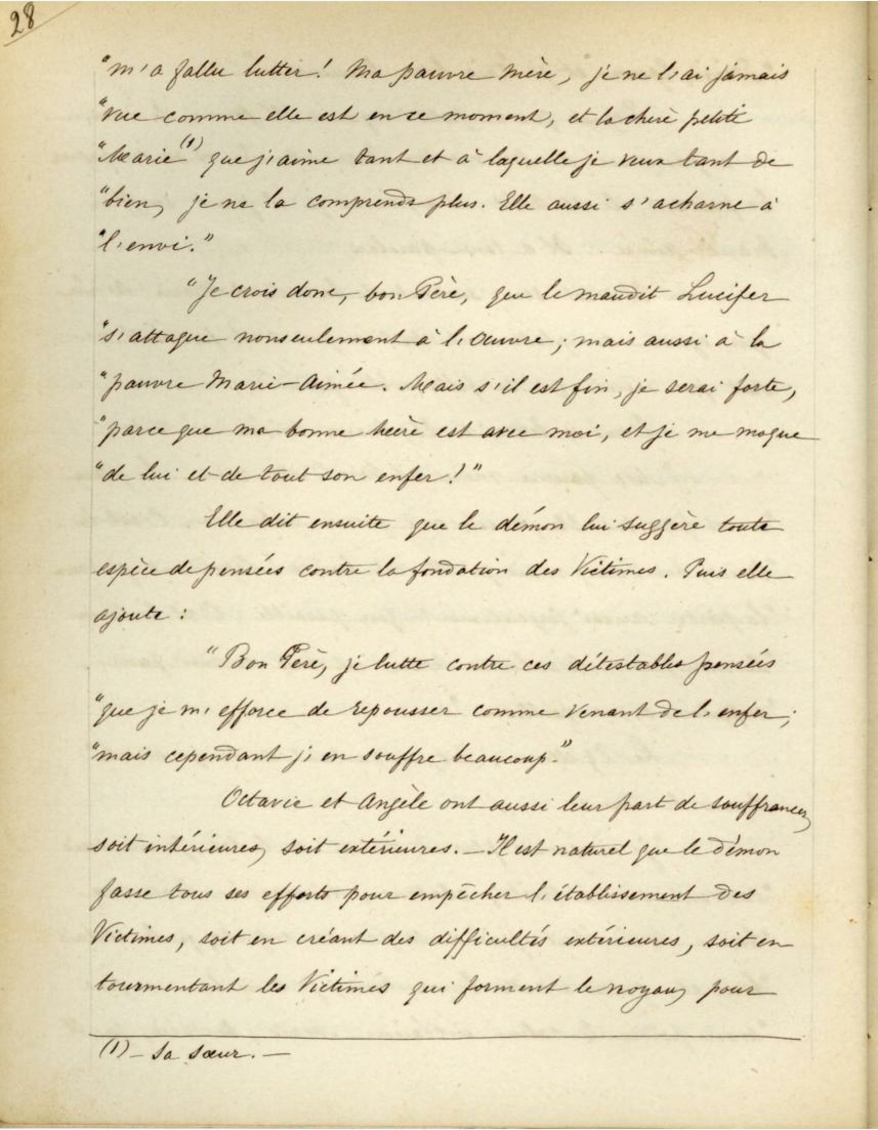 28
"m'a fallu lutter! Ma pauvre mère, je ne l'ai jamais
"vue comme elle est en ce moment, et la chère petite
"Marie (1) que j'aime tant et à laquelle je veux tant de
"bien, je ne la comprends plus. Elle aussi s'acharne à
"l'envi."
"Je crois donc, bon Père, que le maudit Lucifer
"s'attaque nonseulement à l'Oeuvre; mais aussi à la
"pauvre Marie-Aimée. Mais s'il est fin, je serai forte,
"parce que ma bonne Mère est avec moi, et je me moque
"de lui et de tout son enfer!"
Elle dit ensuite que le démon lui suggère toute
espèce de pensées contre la fondation des Victimes. Puis elle
ajoute:
"Bon Père, je lutte contre ces détestables pensées
"que je m'efforce de repousser comme venant de l'enfer;
"mais cependant j'en souffre beaucoup."
Octavie et Angèle ont aussi leur part de souffrances,
soit intérieures, soit extérieures. — Il est naturel que le démon
fasse tous ses efforts pour empêcher l'établissement des
Victimes, soit en créant des difficultés extérieures, soit en
tourmentant les Victimes qui forment le noyau, pour
(1) — Sa sœur. —